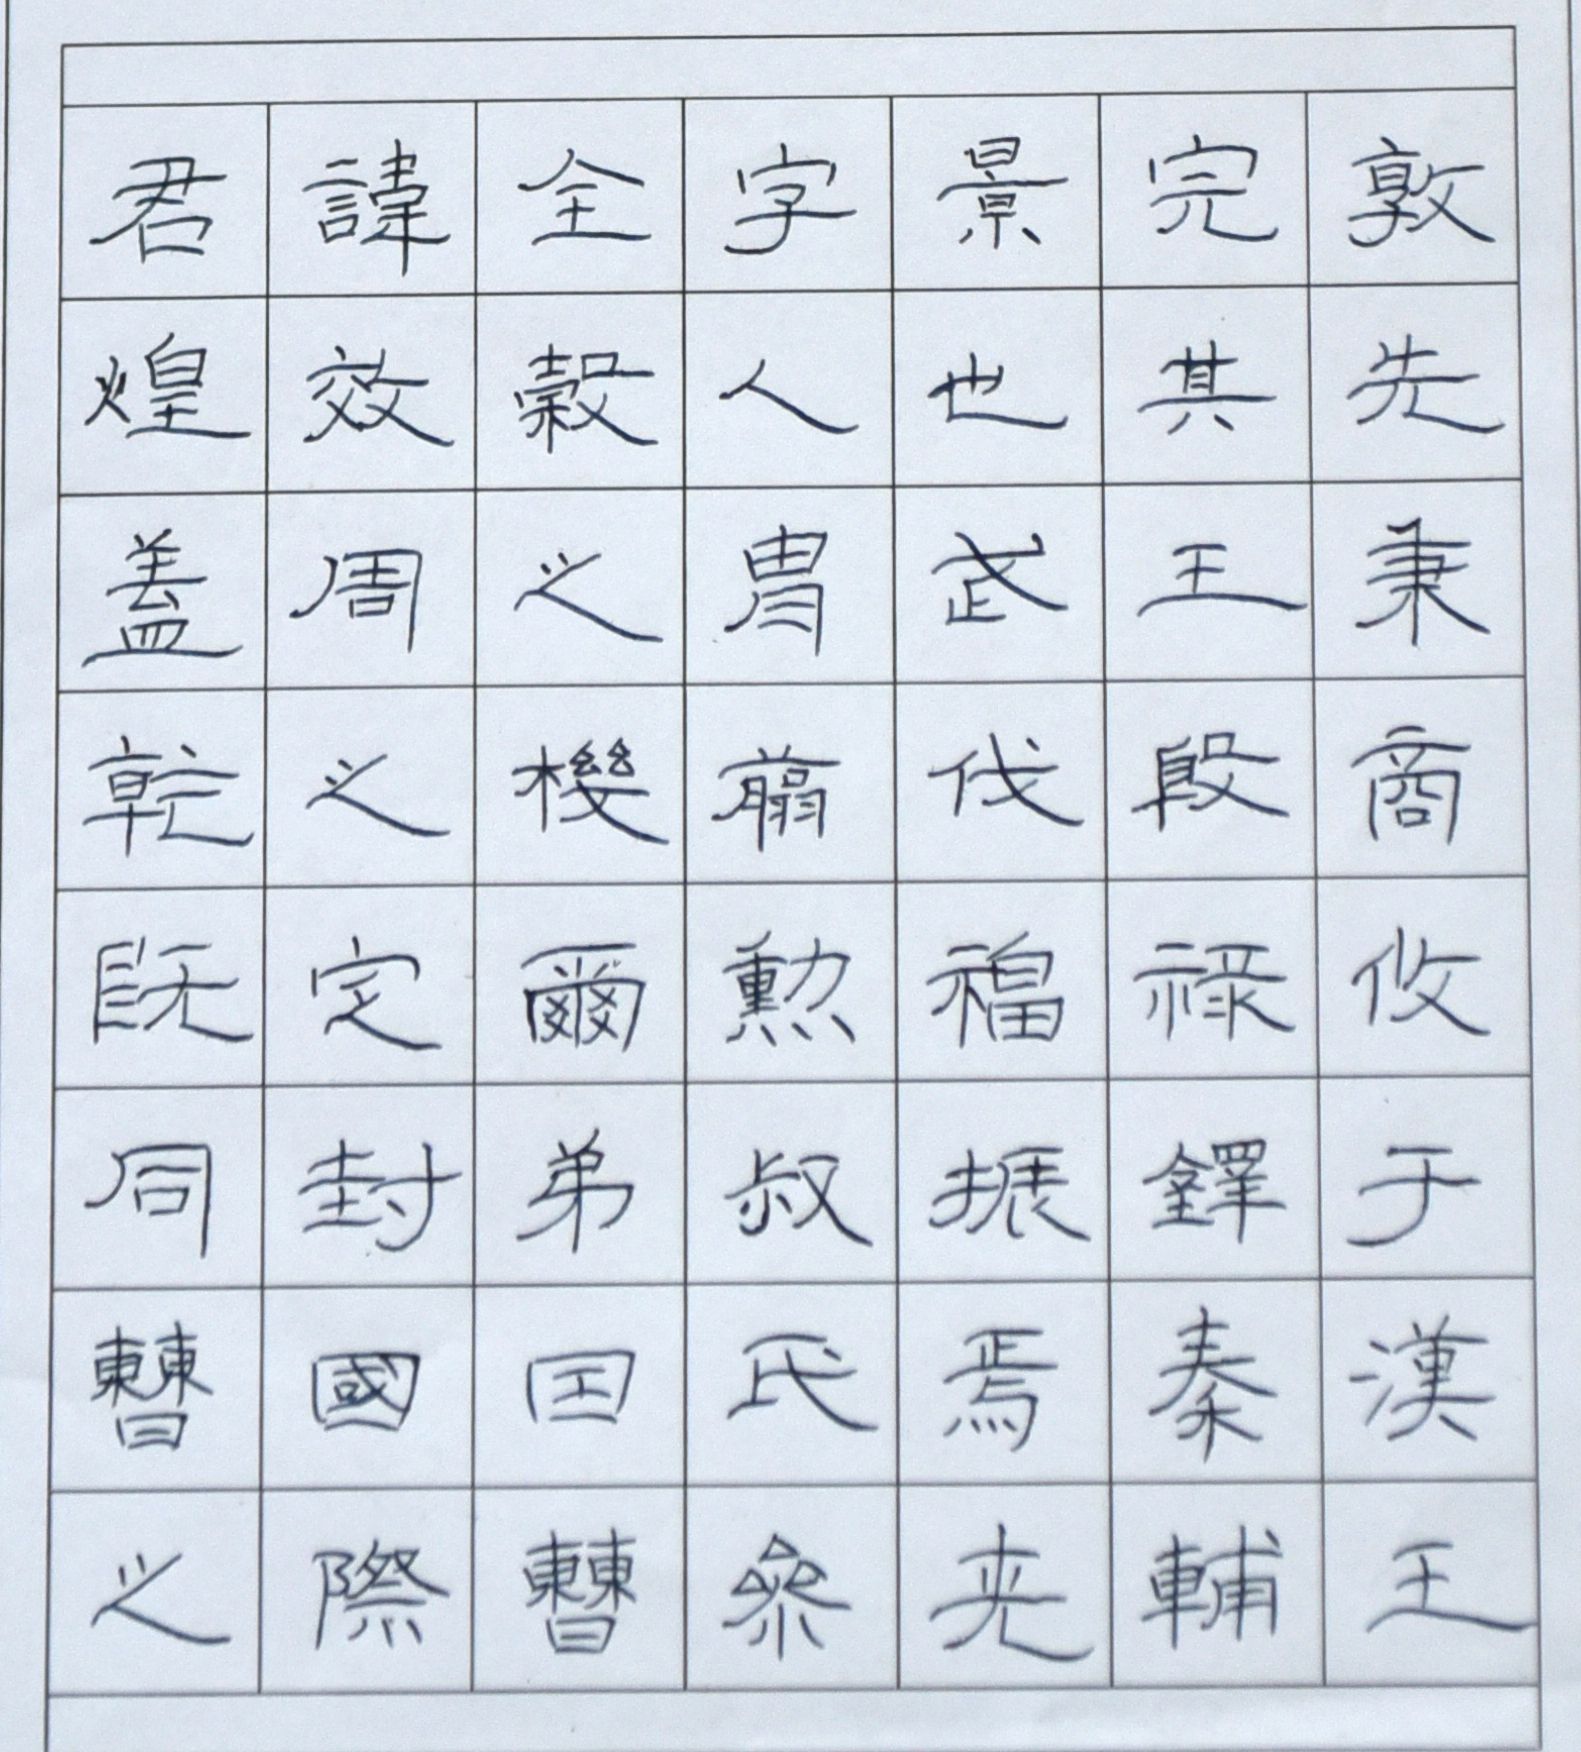 君諱全字景完敦
煌效穀人也其先
蓋周之冑武王秉
乾之機翦伐殷商
既定爾勳福祿攸
同封弟叔振鐸于
曹國囯氏焉秦漢
之際曹參夾輔王